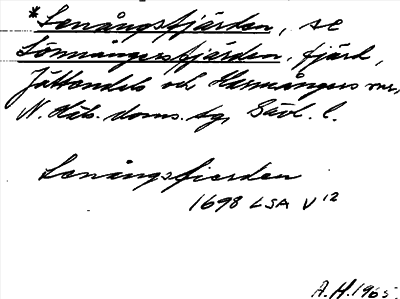 *Lenångsfjärden, se
Sörmångersfjärden, fjärd,
Jättendals och Harmångers snr,
N. Häls. doms. tg, Gävl. l.
Lenångsfierden
1698 LSA V 12
A.H. 1965.